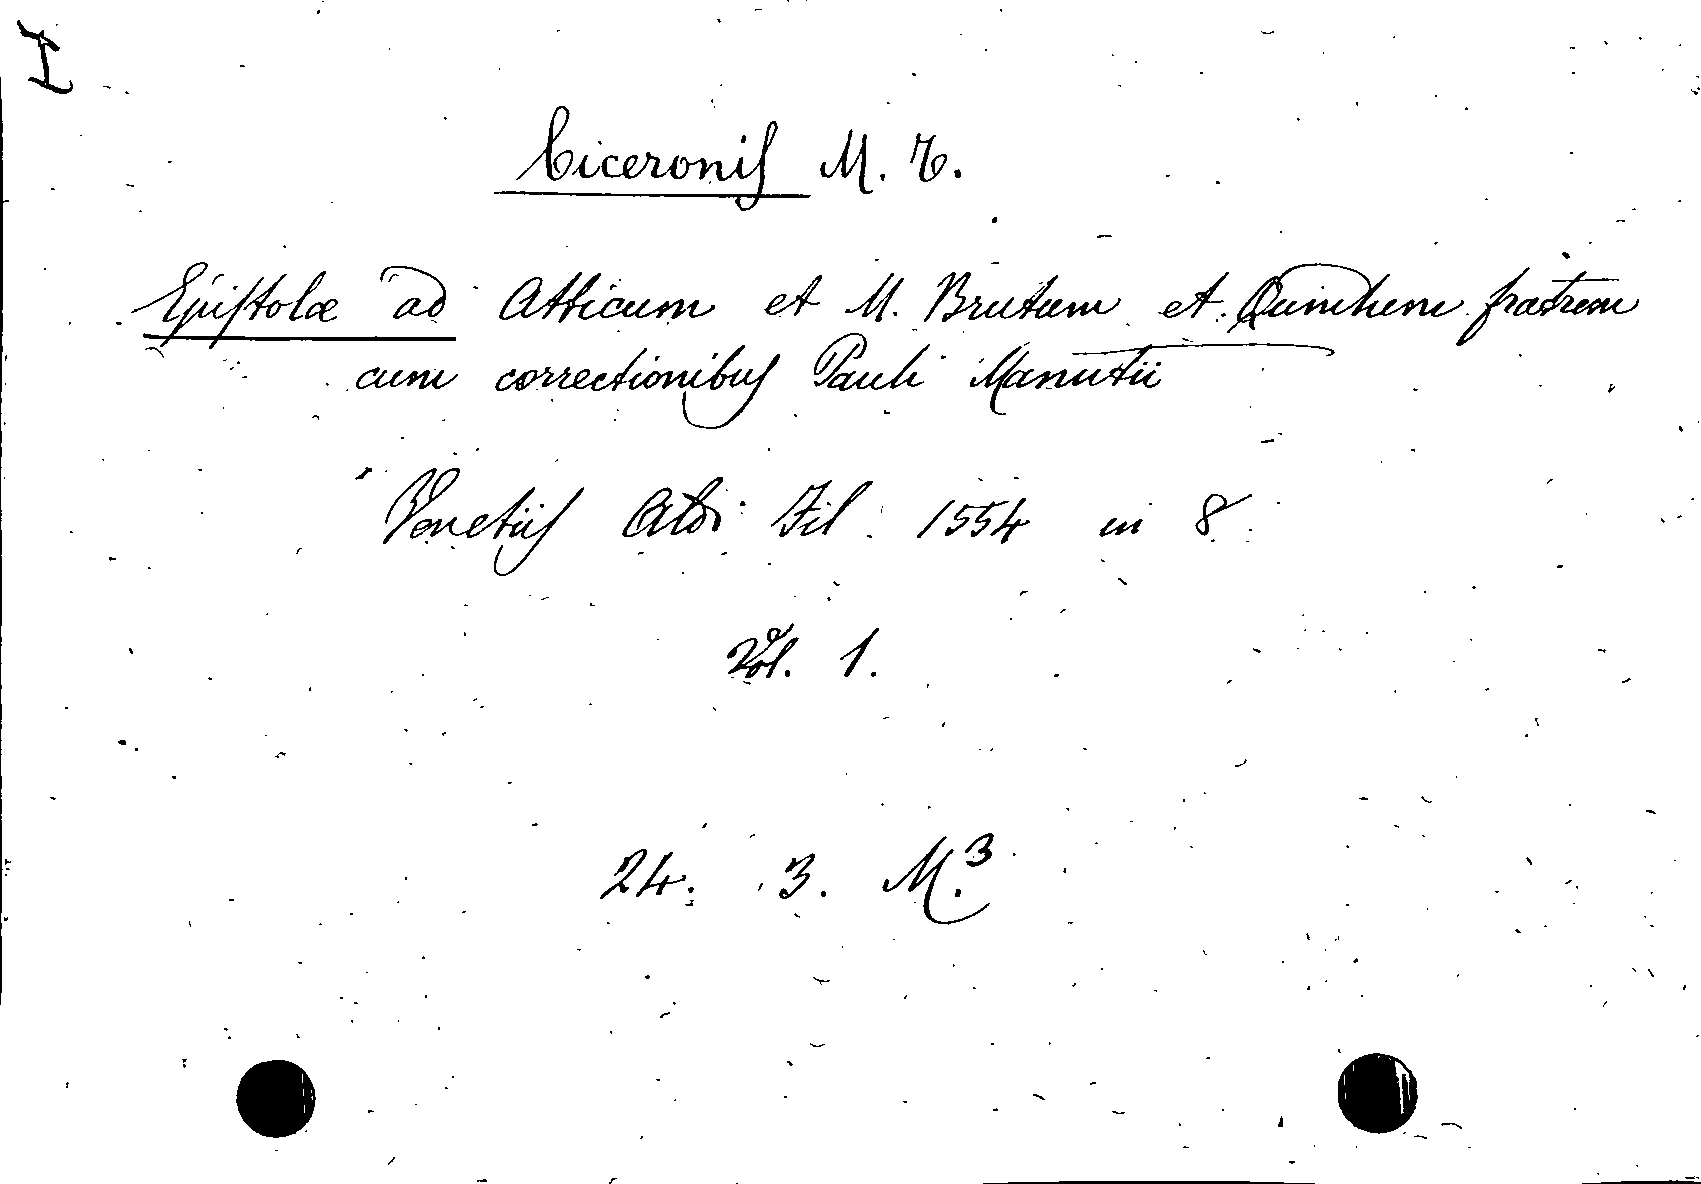 I
Ciceronis M. T.
Epistolæ ad Atticum et M. Brutum et Quinctum fratrem
cum correctionibus Pauli Manutii
Venetiis Aldi Fil. 1554 in 8
Vol. 1.
24. 3. M.3